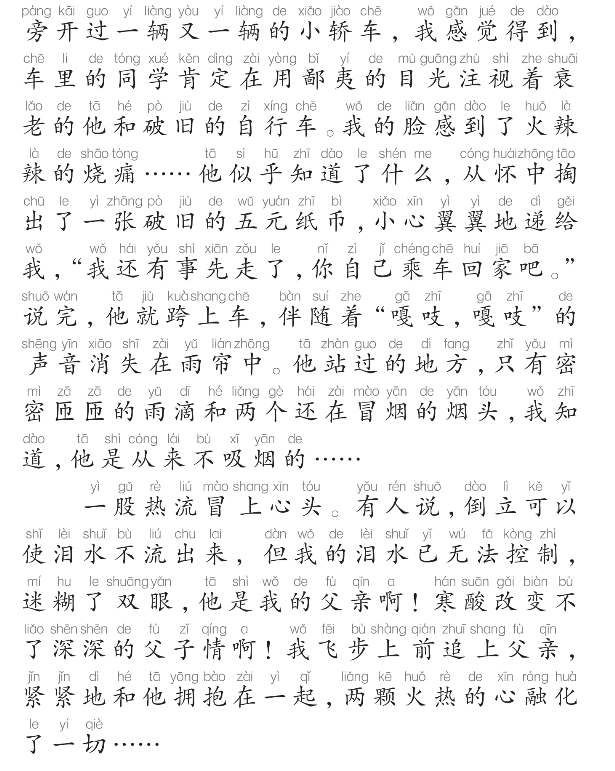 páng kāi guo yí liàng yòu yí liàng de xiǎo jiào chē wǒ gǎn jué de dào
旁开过一辆又一辆的小轿车，我感觉得到，
chē li de tóng xué kěn dìng zài yòng bǐ yí de mù guāng zhù shì zhe shuāi
车里的同学肯定在用鄙夷的目光注视着衰
lǎo de tā hé pò jiù de zì xíng chē wǒ de liǎn gǎn dào le huǒ là
老的他和破旧的自行车。我的脸感到了火辣
là de shāo tòng tā sì hū zhī dào le shén me cóng huái zhōng tāo
辣的烧痛……他似乎知道了什么，从怀中掏
chū le yì zhāng pò jiù de wǔ yuán zhǐ bì xiǎo xīn yì yì de dì gěi
出了一张破旧的五元纸币，小心翼翼地递给
wǒ wǒ hái yǒu shì xiān zǒu le nǐ zì jǐ chéng chē huí jiā bā
我，“我还有事先走了，你自己乘车回家吧。”
shuō wán tā jiù kuà shang chē bàn suí zhe gā zhī gā zhī de
说完，他就跨上车，伴随着“嘎吱，嘎吱”的
shēng yīn xiāo shī zài yǔ lián zhōng tā zhàn guo de dì fang zhǐ yǒu mì
声音消失在雨帘中。他站过的地方，只有密
mì zā zā de yǔ dī hé liǎng gè hái zài mào yān de yān tóu wǒ zhī
密匝匝的雨滴和两个还在冒烟的烟头，我知
dào tā shì cóng lái bù xī yān de
道，他是从来不吸烟的……
yì gǔ rè liú mào shang xīn tóu yǒu rén shuō dào lì kě yǐ
一股热流冒上心头。有人说，倒立可以
shǐ lèi shuǐ bù liú chu lai dàn wǒ de lèi shuǐ yǐ wú fǎ kòng zhì
使泪水不流出来，但我的泪水已无法控制，
mí hu le shuāng yǎn tā shì wǒ de fù qīn a hán suān gǎi biàn bù
迷糊了双眼，他是我的父亲啊！寒酸改变不
liǎo shēn shēn de fù zǐ qíng a wǒ fēi bù shàng qián zhuī shang fù qīn
了深深的父子情啊！我飞步上前追上父亲，
jǐn jǐn dì hé tā yōng bào zài yì qǐ liǎng kē huǒ rè de xīn róng huà
紧紧地和他拥抱在一起，两颗火热的心融化
le yí qiè
了一切……